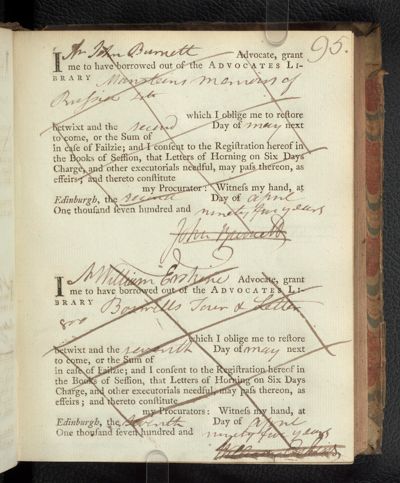 95.
I Mr John Burnett Advocate, grant
me to have borrowed out of the ADVOCATES LI-
BRARY Mansteins memoirs of
Russia 4to
which I oblige me to reſtore
betwixt and the second Day of may next
to come, or the Sum of
in caſe of Failzie; and I conſent to the Regiſtration hereof in
the Books of Seſſion, that Letters of Horning on Six Days
Charge, and other executorials needful, may paſs thereon, as
effeirs; and thereto conſtitute
my Procurator: Witneſs my hand, at
Edinburgh, the second Day of april
One thouſand ſeven hundred and ninety five years
John Burnett
I Mr William Erskine Advocate, grant
me to have borrowed out of the ADVOCATES LI-
BRARY Boswells Tour & Letter
8vo
which I oblige me to reſtore
betwixt and the seventh Day of may next
to come, or the Sum of
in caſe of Failzie; and I conſent to the Regiſtration hereof in
the Books of Seſſion, that Letters of Horning on Six Days
Charge, and other executorials needful, may paſs thereon, as
effeirs; and thereto conſtitute
my Procurators: Witneſs my hand, at
Edinburgh, the seventh Day of april
One thouſand ſeven hundred and ninety five years
William Erskine